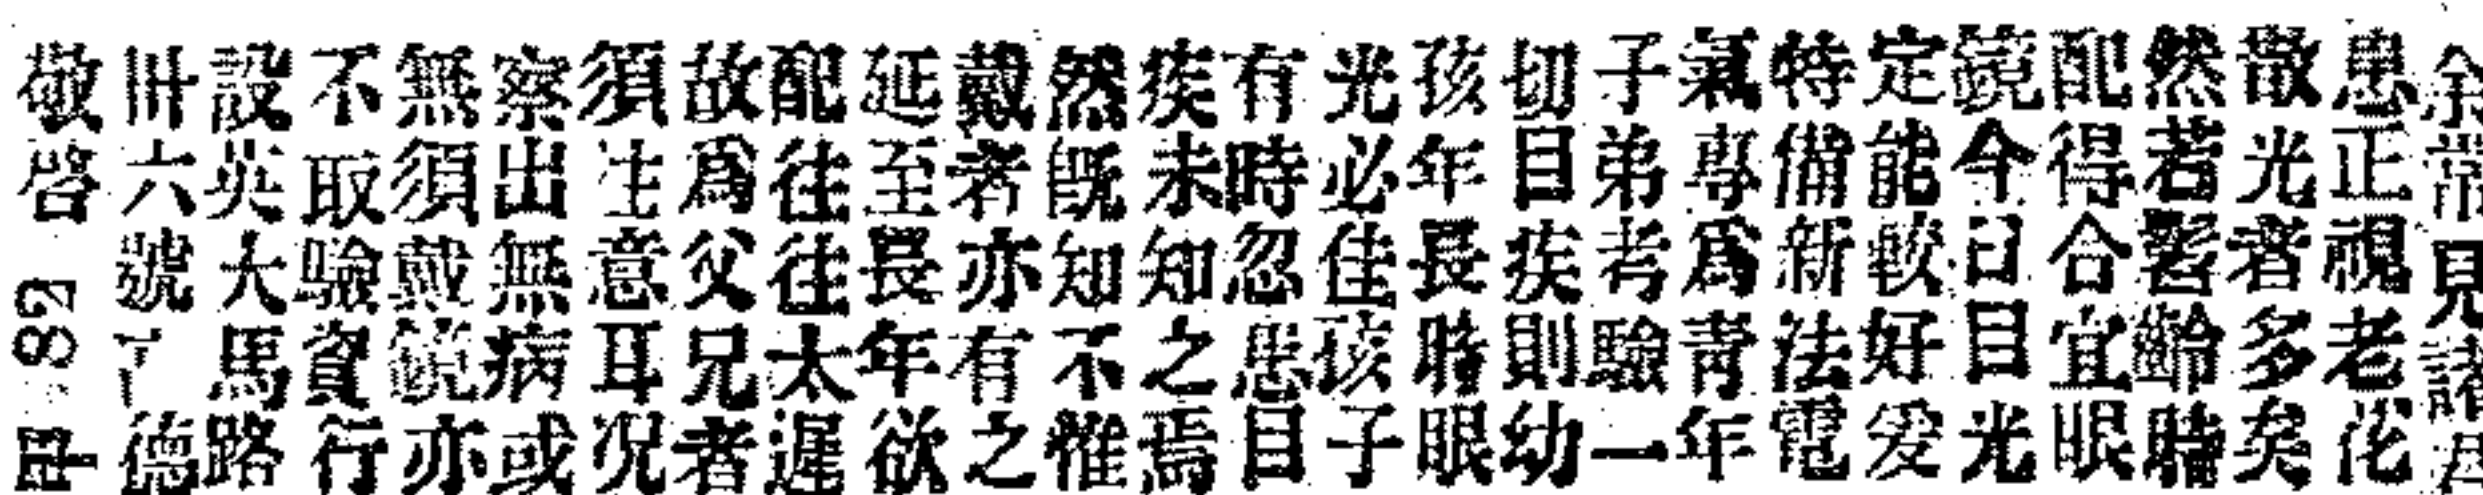 余常見諸君
患正視老花
散光者多矣
然若髫齡時
配得合宜眼
鏡今日目光
定能較好爰
特備新法電
氣專爲青年
子弟考驗一
切目疾則幼
孩年長時眼
光必佳孩子
有時忽患目
疾未知之焉
然既知不惟
戴者亦有之
延至長年欲
配往往太遲
故爲父兄者
須生意耳況
察出無病或
無須戴鏡亦
不取驗資行
設英大馬路
卌六號 德
敬啓